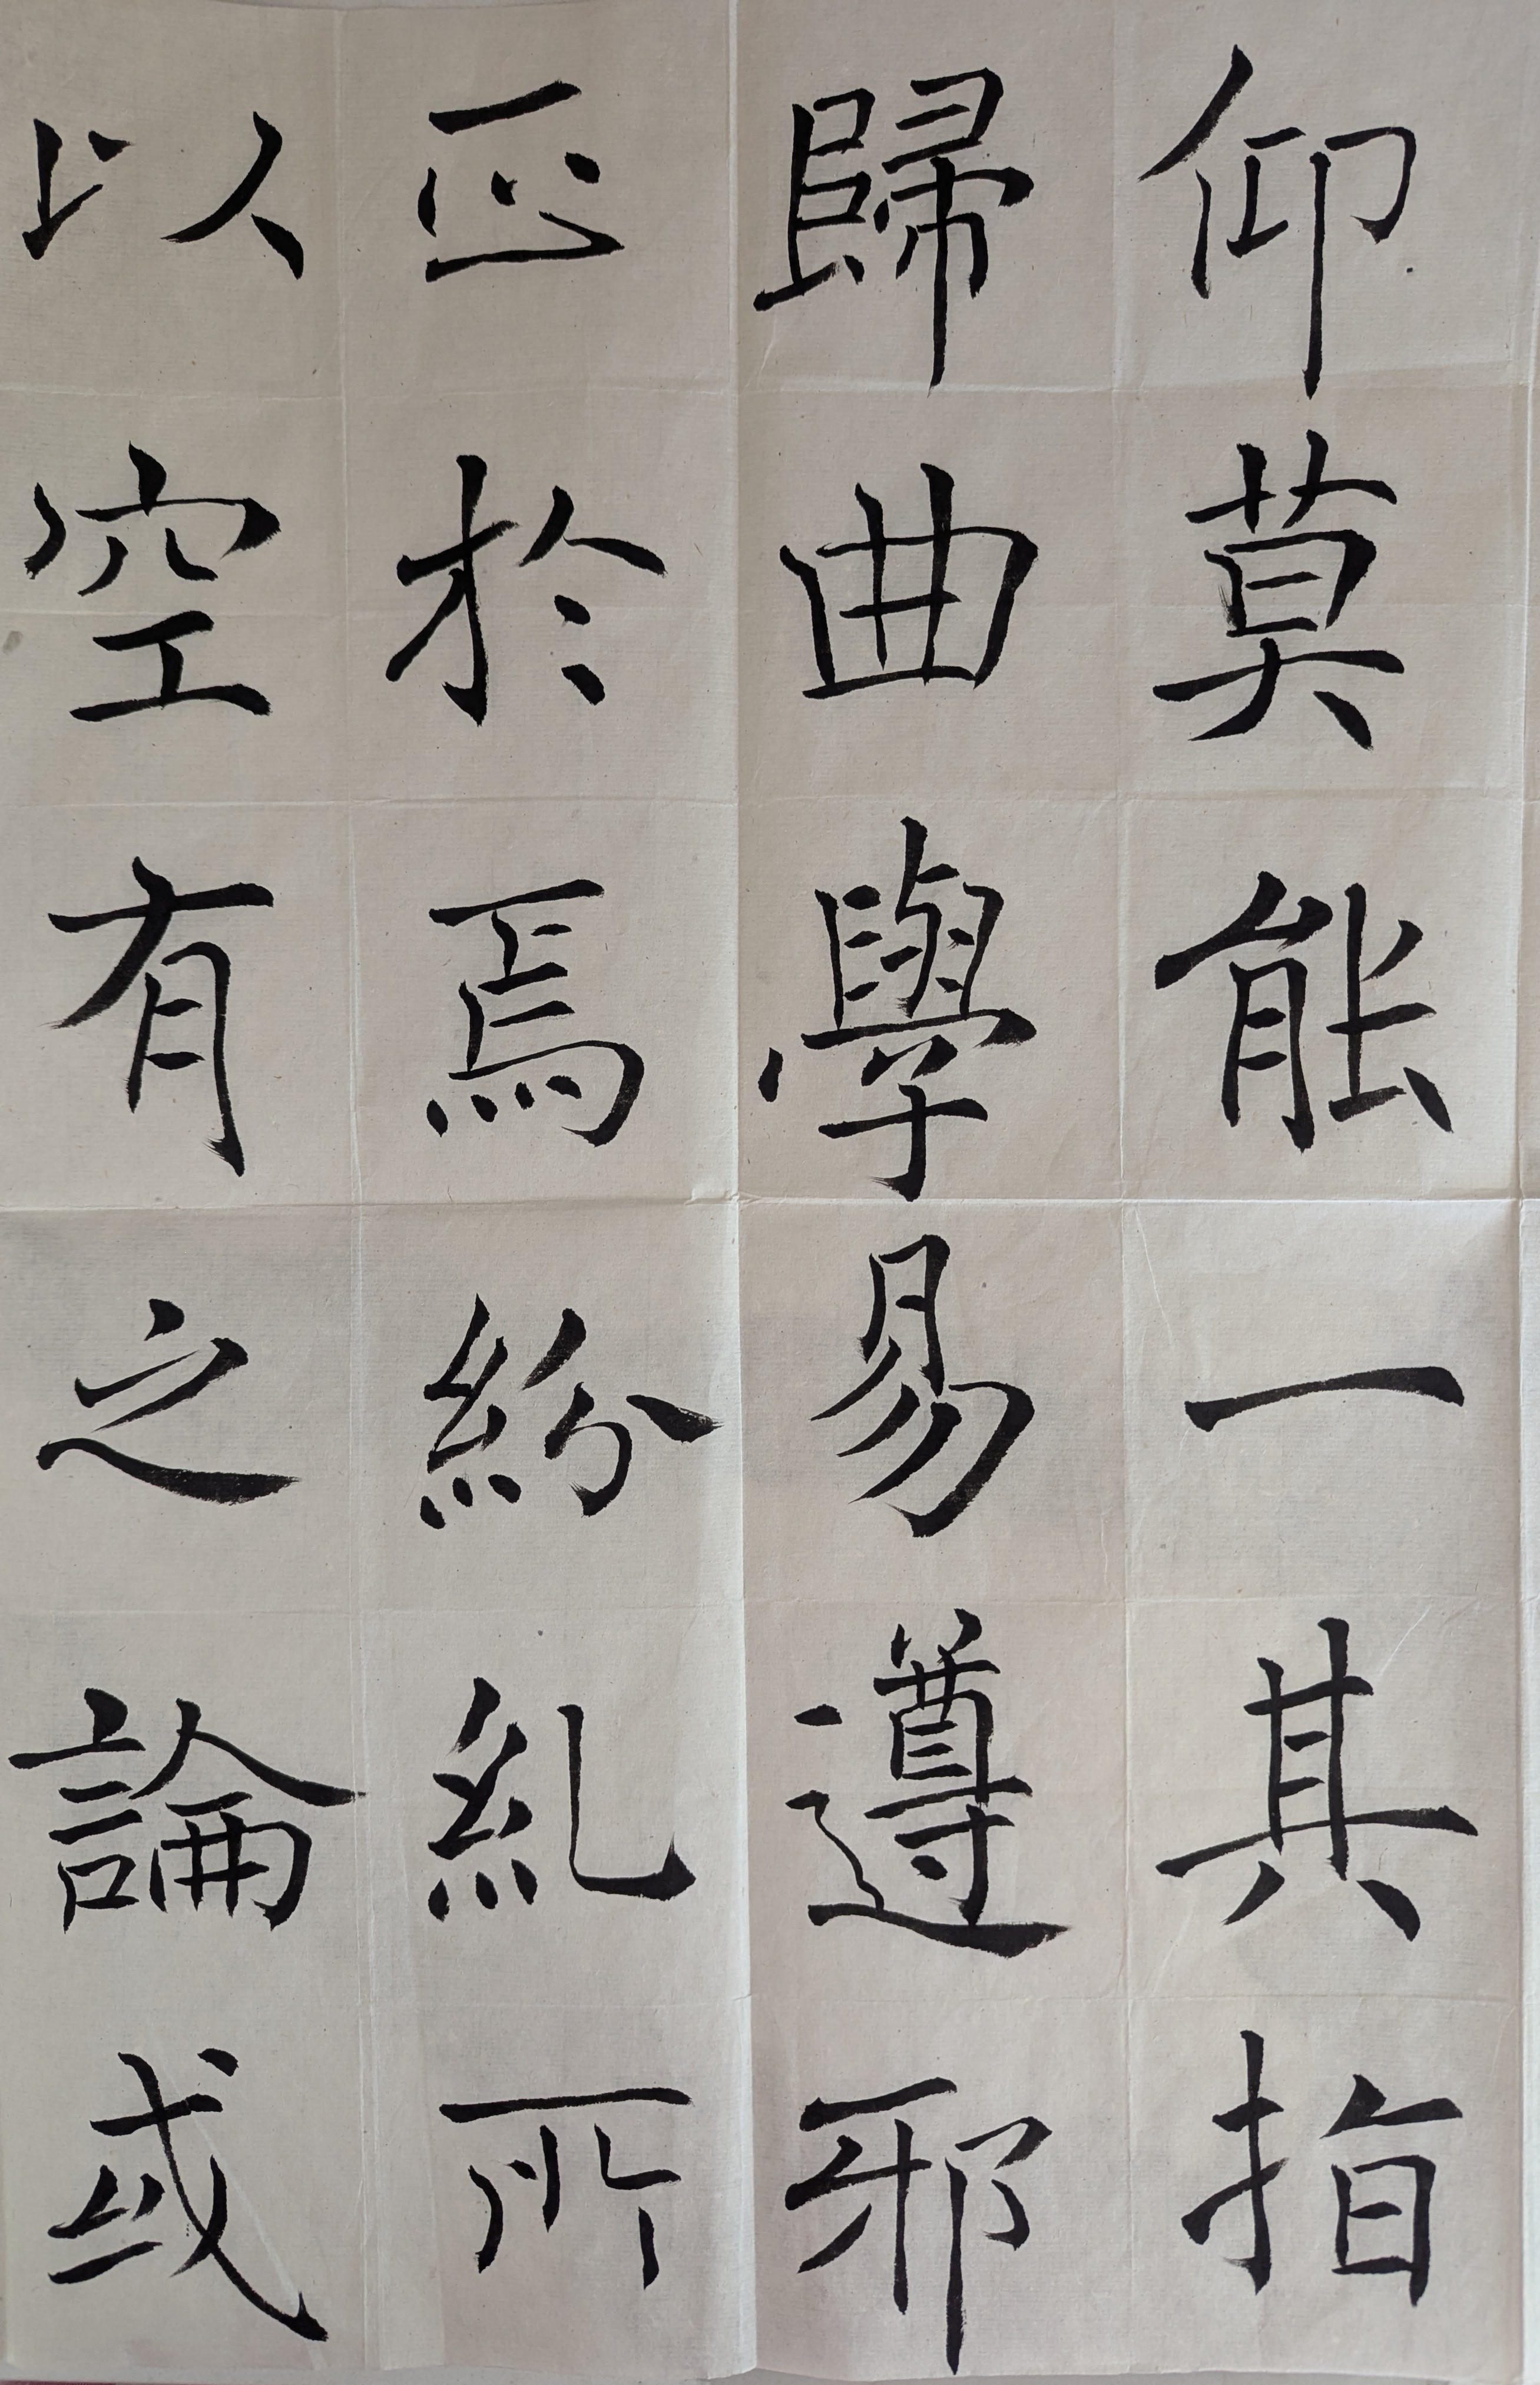 仰莫能一其指
歸曲學易遵邪
正於焉紛糺所
以空有之論或